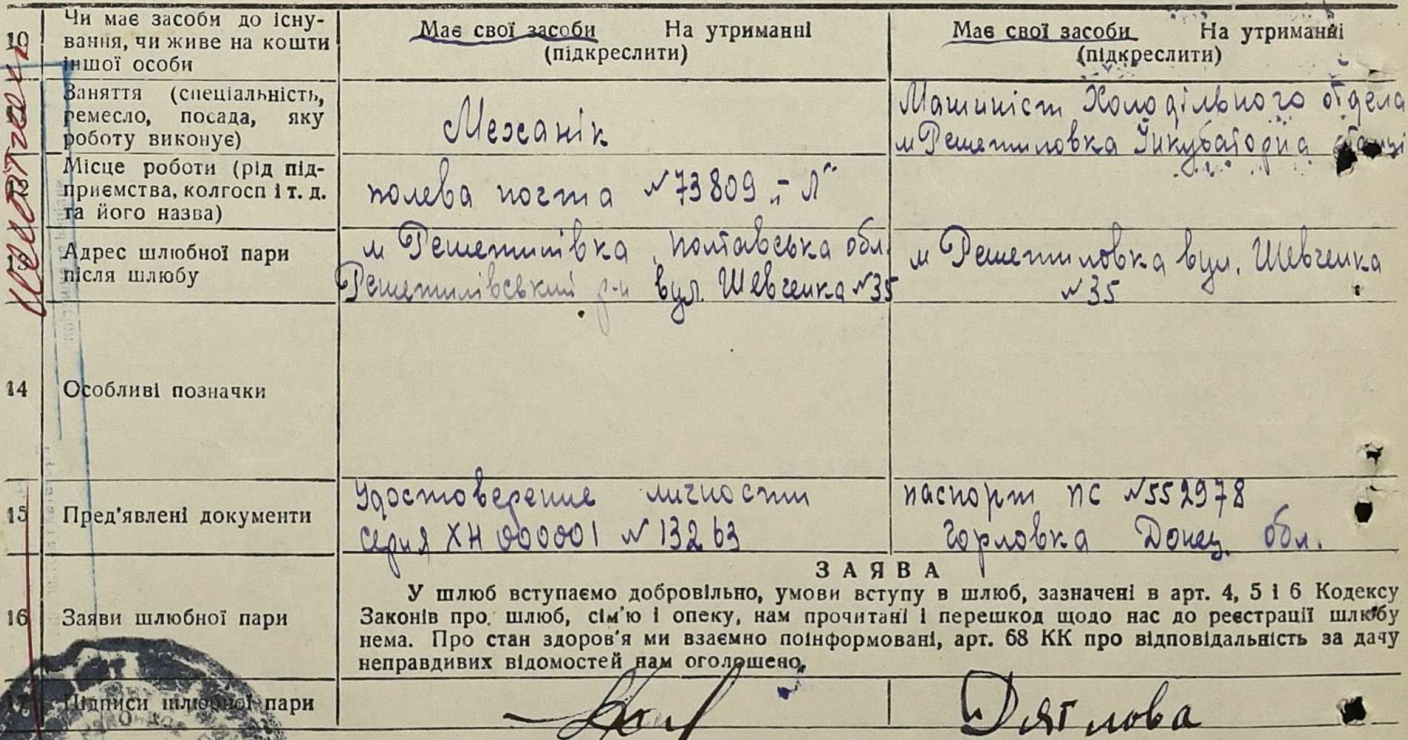 10 Чи має засоби до існу-
вання, чи живе на кошти
іншої особи
Має свої засоби На утриманні
(підкреслити)
Має свої засоби На утриманні
(підкреслити)
Заняття (спеціальність,
ремесло, посада, яку
роботу виконує)
Механік
Машиніст Холодільного отдела
м Решетиловка Інкубаторна
Місце роботи (рід під-
приємства, колгосп і т. д.
та його назва)
полева почта №73809 „Л“
Адрес шлюбної пари
після шлюбу
м Решетилівка Полтавська обл
Решетилівський р-н вул. Шевченка №35
м Решетиловка вул. Шевченка
№35
14 Особливі позначки
15 Пред'явлені документи
Удостоверение личности
серия ХН 000001 №13263
паспорт ПС №552978
Горловка Донец. обл.
16 Заяви шлюбної пари
ЗАЯВА
У шлюб вступаємо добровільно, умови вступу в шлюб, зазначені в арт. 4, 5 і 6 Кодексу
Законів про шлюб, сім'ю і опеку, нам прочитані і перешкод щодо нас до реєстрації шлюбу
нема. Про стан здоров'я ми взаємно поінформовані, арт. 68 КК про відповідальність за дачу
неправдивих відомостей нам оголошено.
17 Підписи шлюбної пари
Дятлова